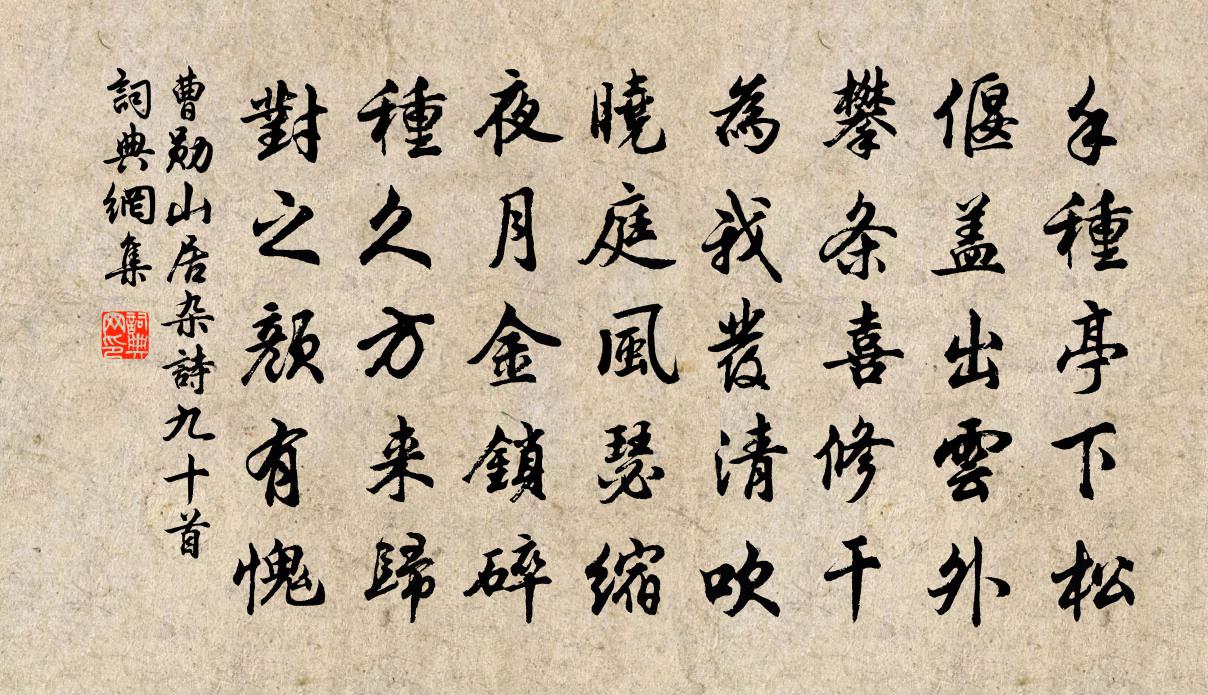 手種亭下松
偃盖出雲外
攀条喜修干
為我發清吹
曉庭風瑟縮
夜月金鎖碎
種久方来歸
對之顏有愧
曹勛山居杂詩九十首
詞典網集
詞典网印